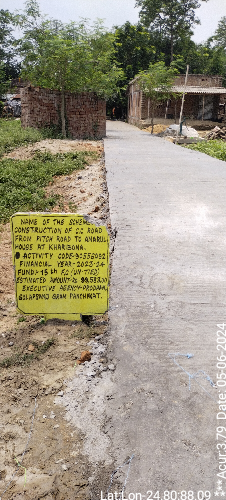 NAME OF THE SCHEME
CONSTRUCTION OF CC ROAD
FROM PITCH ROAD TO ANARUL
HOUSE AT KHARIBONA.
ACTIVITY CODE-90556092
FINANCIAL YEAR-2023-24
FUND:- 15 th FC (UN-TIED)
ESTIMATED AMOUNT-RS 99,583.00
EXECUTIVE AGENCY-PRODHAN,
GOLAPGANJ GRAM PANCHAYAT.
LatLon-24.80:88.09
**Acur:3.79 Date:05-06-2024